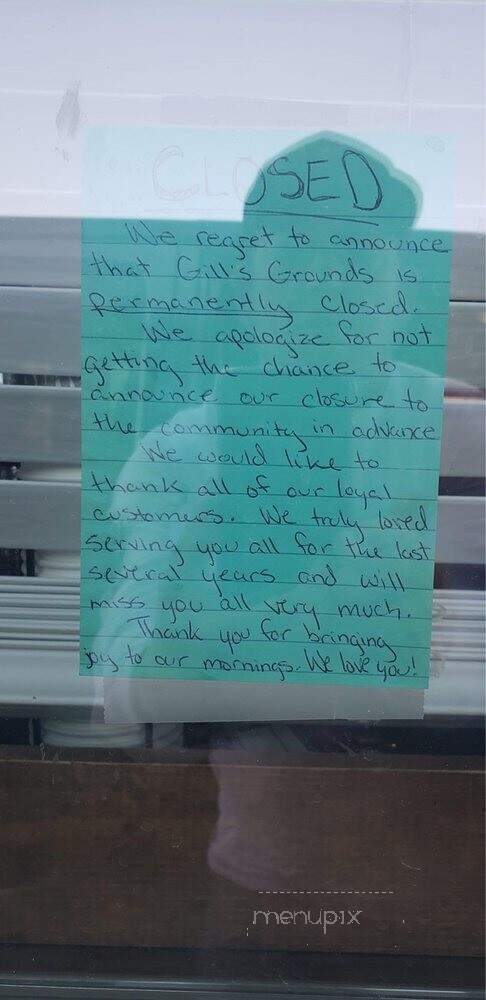 CLOSED
We regret to announce
that Gill's Grounds is
permanently closed.
We apologize for not
getting the chance to
announce our closure to
the community in advance
We would like to
thank all of our loyal
customers. We truly loved
serving you all for the last
several years and will
miss you all very much.
Thank you for bringing
joy to our mornings. We love you!
menupix